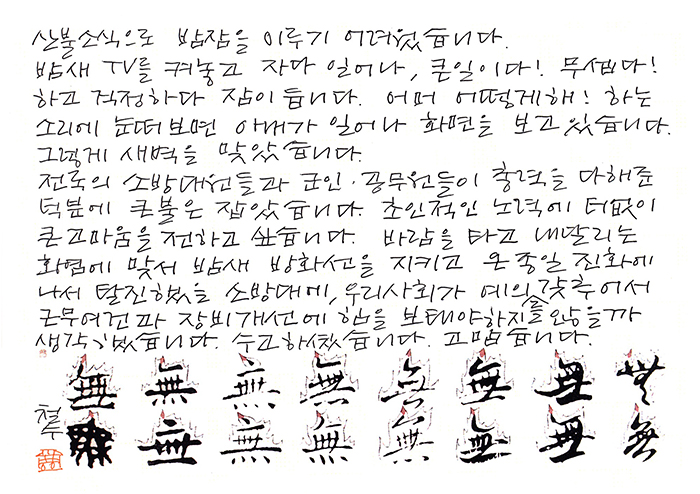 산불소식으로 밤잠을 이루기 어려웠습니다.
밤새 TV를 켜놓고 자다 일어나, 큰일이다! 무섭다!
하고 걱정하다 잠이 듭니다. 어머 어떻게해! 하는
소리에 눈떠보면 아내가 일어나 화면을 보고있습니다.
그렇게 새벽을 맞았습니다.
전국의 소방대원들과 군인·공무원들이 총력을 다해준
덕분에 큰불은 잡았습니다. 초인적인 노력에 더없이
큰고마움을 전하고 싶습니다. 바람을 타고 내달리는
화염에 맞서 밤새 방화선을 지키고 온종일 진화에
나서 탈진했을 소방대에, 우리사회가 예의를 갖추어서
근무여건과 장비개선에 힘을 보태야하지않을까
생각해봤습니다. 수고하셨습니다. 고맙습니다.
無 無 無 無 無 無 無 無
철수 無 無 無 無 無 無 無